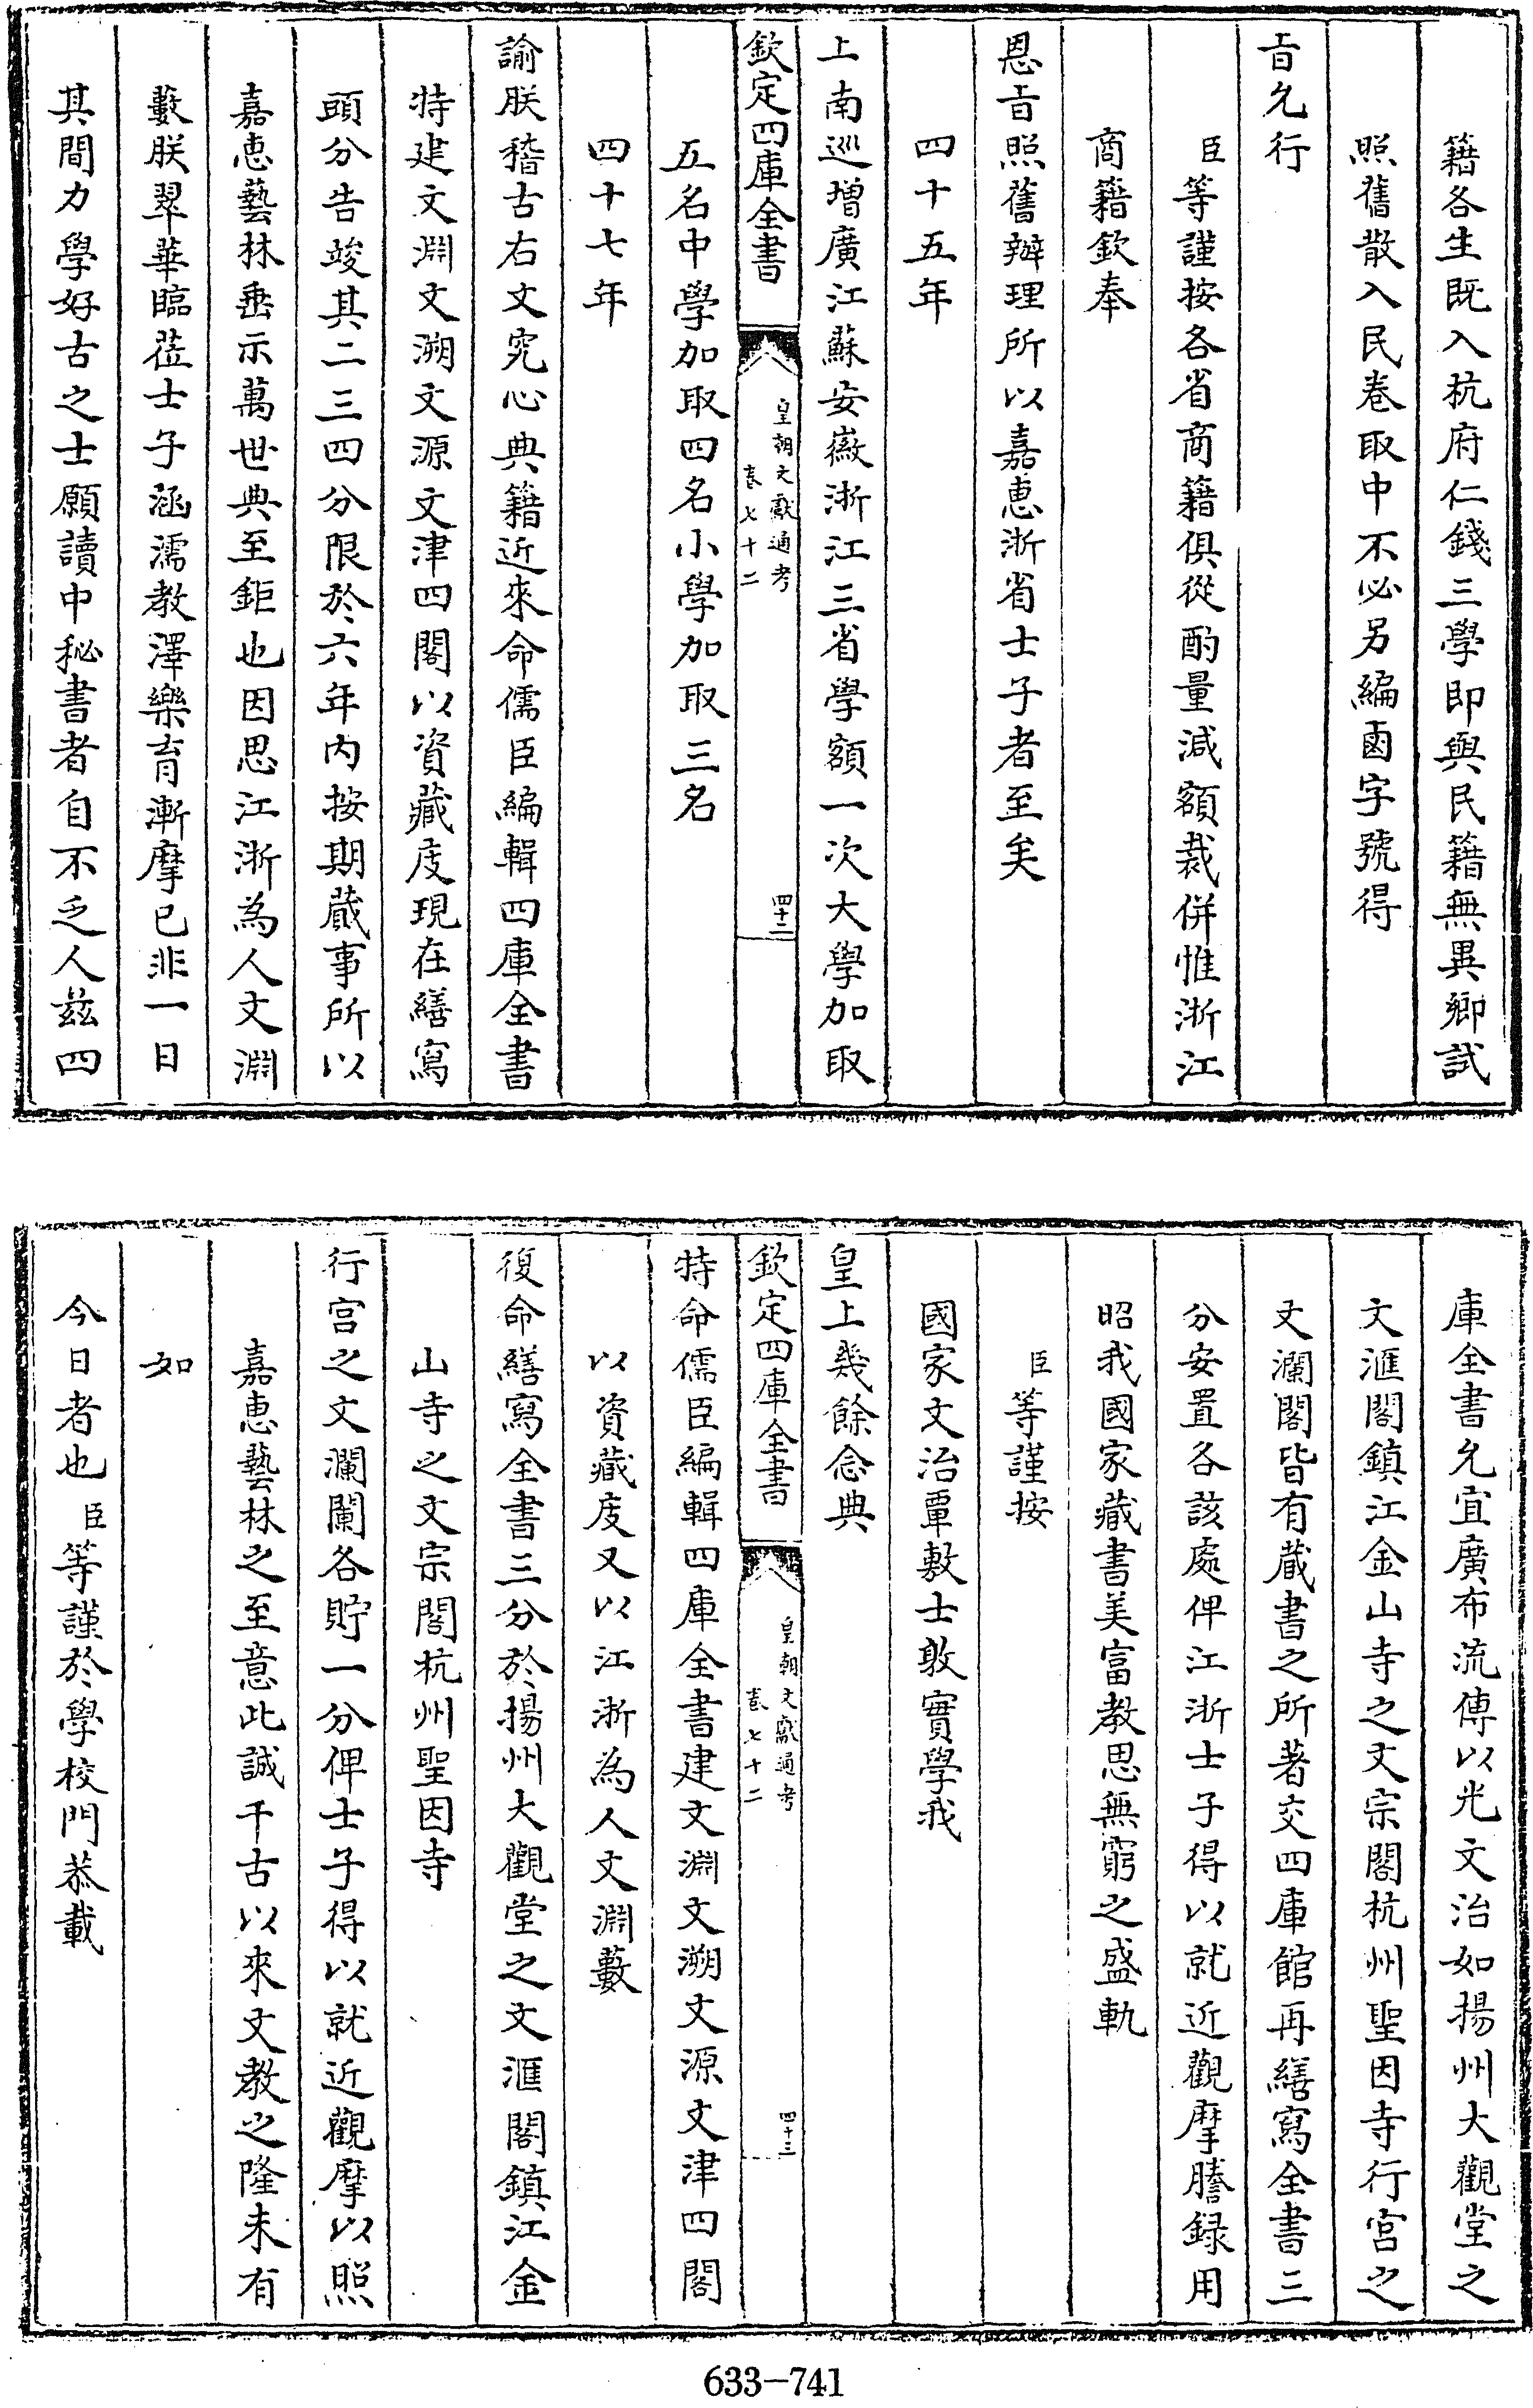 籍各生既入杭府仁錢三學即與民籍無異鄉試
照舊散入民卷取中不必另編鹵字號得
旨允行
臣等謹按各省商籍俱從酌量減額裁併惟浙江
商籍欽奉
恩旨照舊辦理所以嘉惠浙省士子者至矣
四十五年
上南巡增廣江蘇安徽浙江三省學額一次大學加取
欽定四庫全書
皇朝文獻通考
卷七十二
四十二
五名中學加取四名小學加取三名
四十七年
諭朕稽古右文究心典籍近來命儒臣編輯四庫全書
特建文淵文溯文源文津四閣以資藏庋現在繕寫
頭分告竣其二三四分限於六年內按期蕆事所以
嘉惠藝林垂示萬世典至鉅也因思江浙為人文淵
藪朕翠華臨莅士子涵濡教澤樂育漸摩已非一日
其間力學好古之士願讀中秘書者自不乏人茲四
庫全書允宜廣布流傳以光文治如揚州大觀堂之
文滙閣鎮江金山寺之文宗閣杭州聖因寺行宮之
文瀾閣皆有藏書之所著交四庫館再繕寫全書三
分安置各該處俾江浙士子得以就近觀摩謄錄用
昭我國家藏書美富教思無窮之盛軌
臣等謹按
國家文治覃敷士敦實學我
皇上幾餘念典
欽定四庫全書
皇朝文獻通考
卷七十二
四十三
特命儒臣編輯四庫全書建文淵文溯文源文津四閣
以資藏庋又以江浙為人文淵藪
復命繕寫全書三分於揚州大觀堂之文滙閣鎮江金
山寺之文宗閣杭州聖因寺
行宮之文瀾閣各貯一分俾士子得以就近觀摩以照
嘉惠藝林之至意此誠千古以來文教之隆未有
如
今日者也臣等謹於學校門恭載
633-741